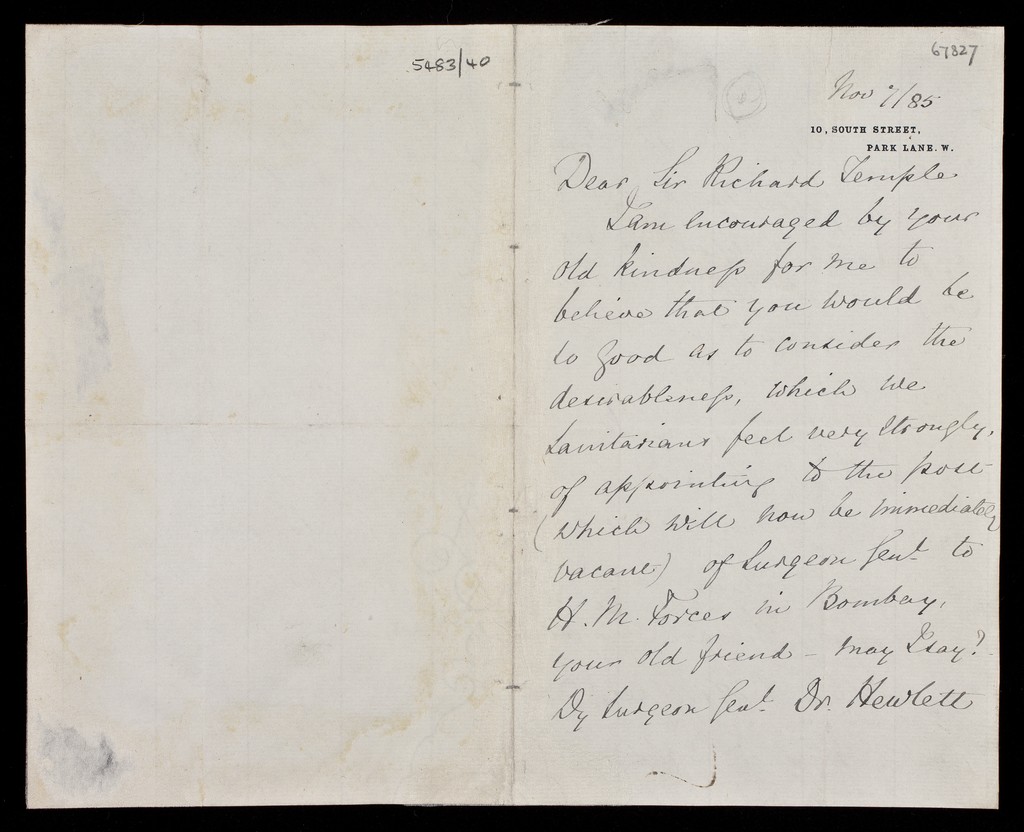 5483/40
67827
Nov 7/85
10, SOUTH STREET,
PARK LANE. W.
Dear Sir Richard Temple
I am encouraged by your
old kindness for me to
believe that you would be
so good as to consider the
desirableness, which we
Sanitarians feel very strongly,
of appointing to the post
(which will now be immediately
vacant) of Surgeon Genl. to
H. M. Forces in Bombay,
your old friend – may I say?
Dy Surgeon Genl. Dr. Hewlett